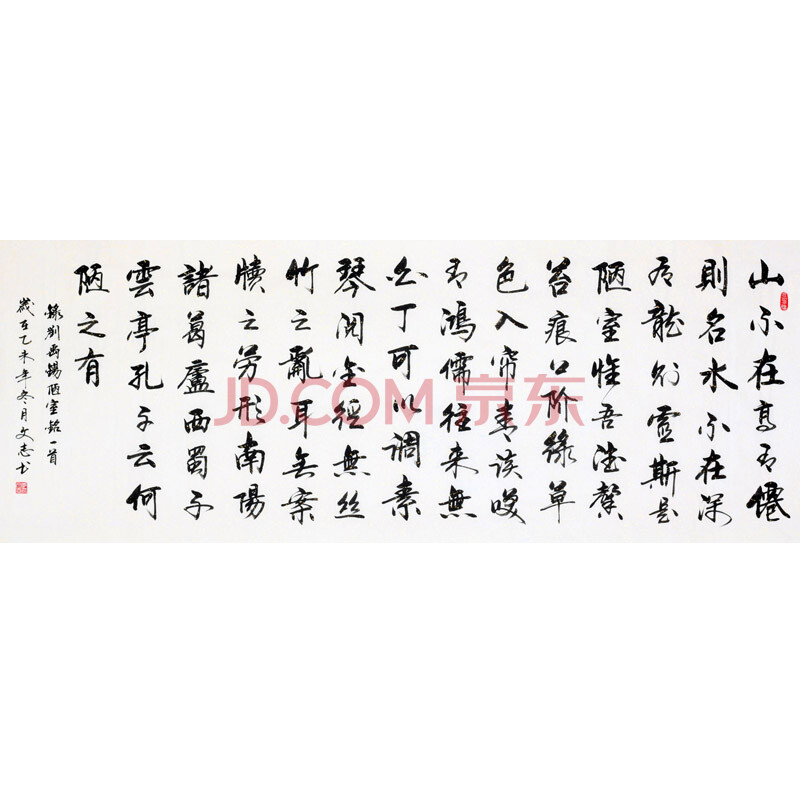 山不在高有僊
則名水不在深
有龍则靈斯是
陋室惟吾德馨
苔痕上阶綠草
色入帘青谈咲
有鴻儒往来無
白丁可以调素
琴閲金經無丝
竹之亂耳无案
牘之劳形南陽
諸葛廬西蜀子
雲亭孔子云何
陋之有
錄劉禹錫陋室铭一首
歲在乙未年冬月文志书
JD.COM 京东